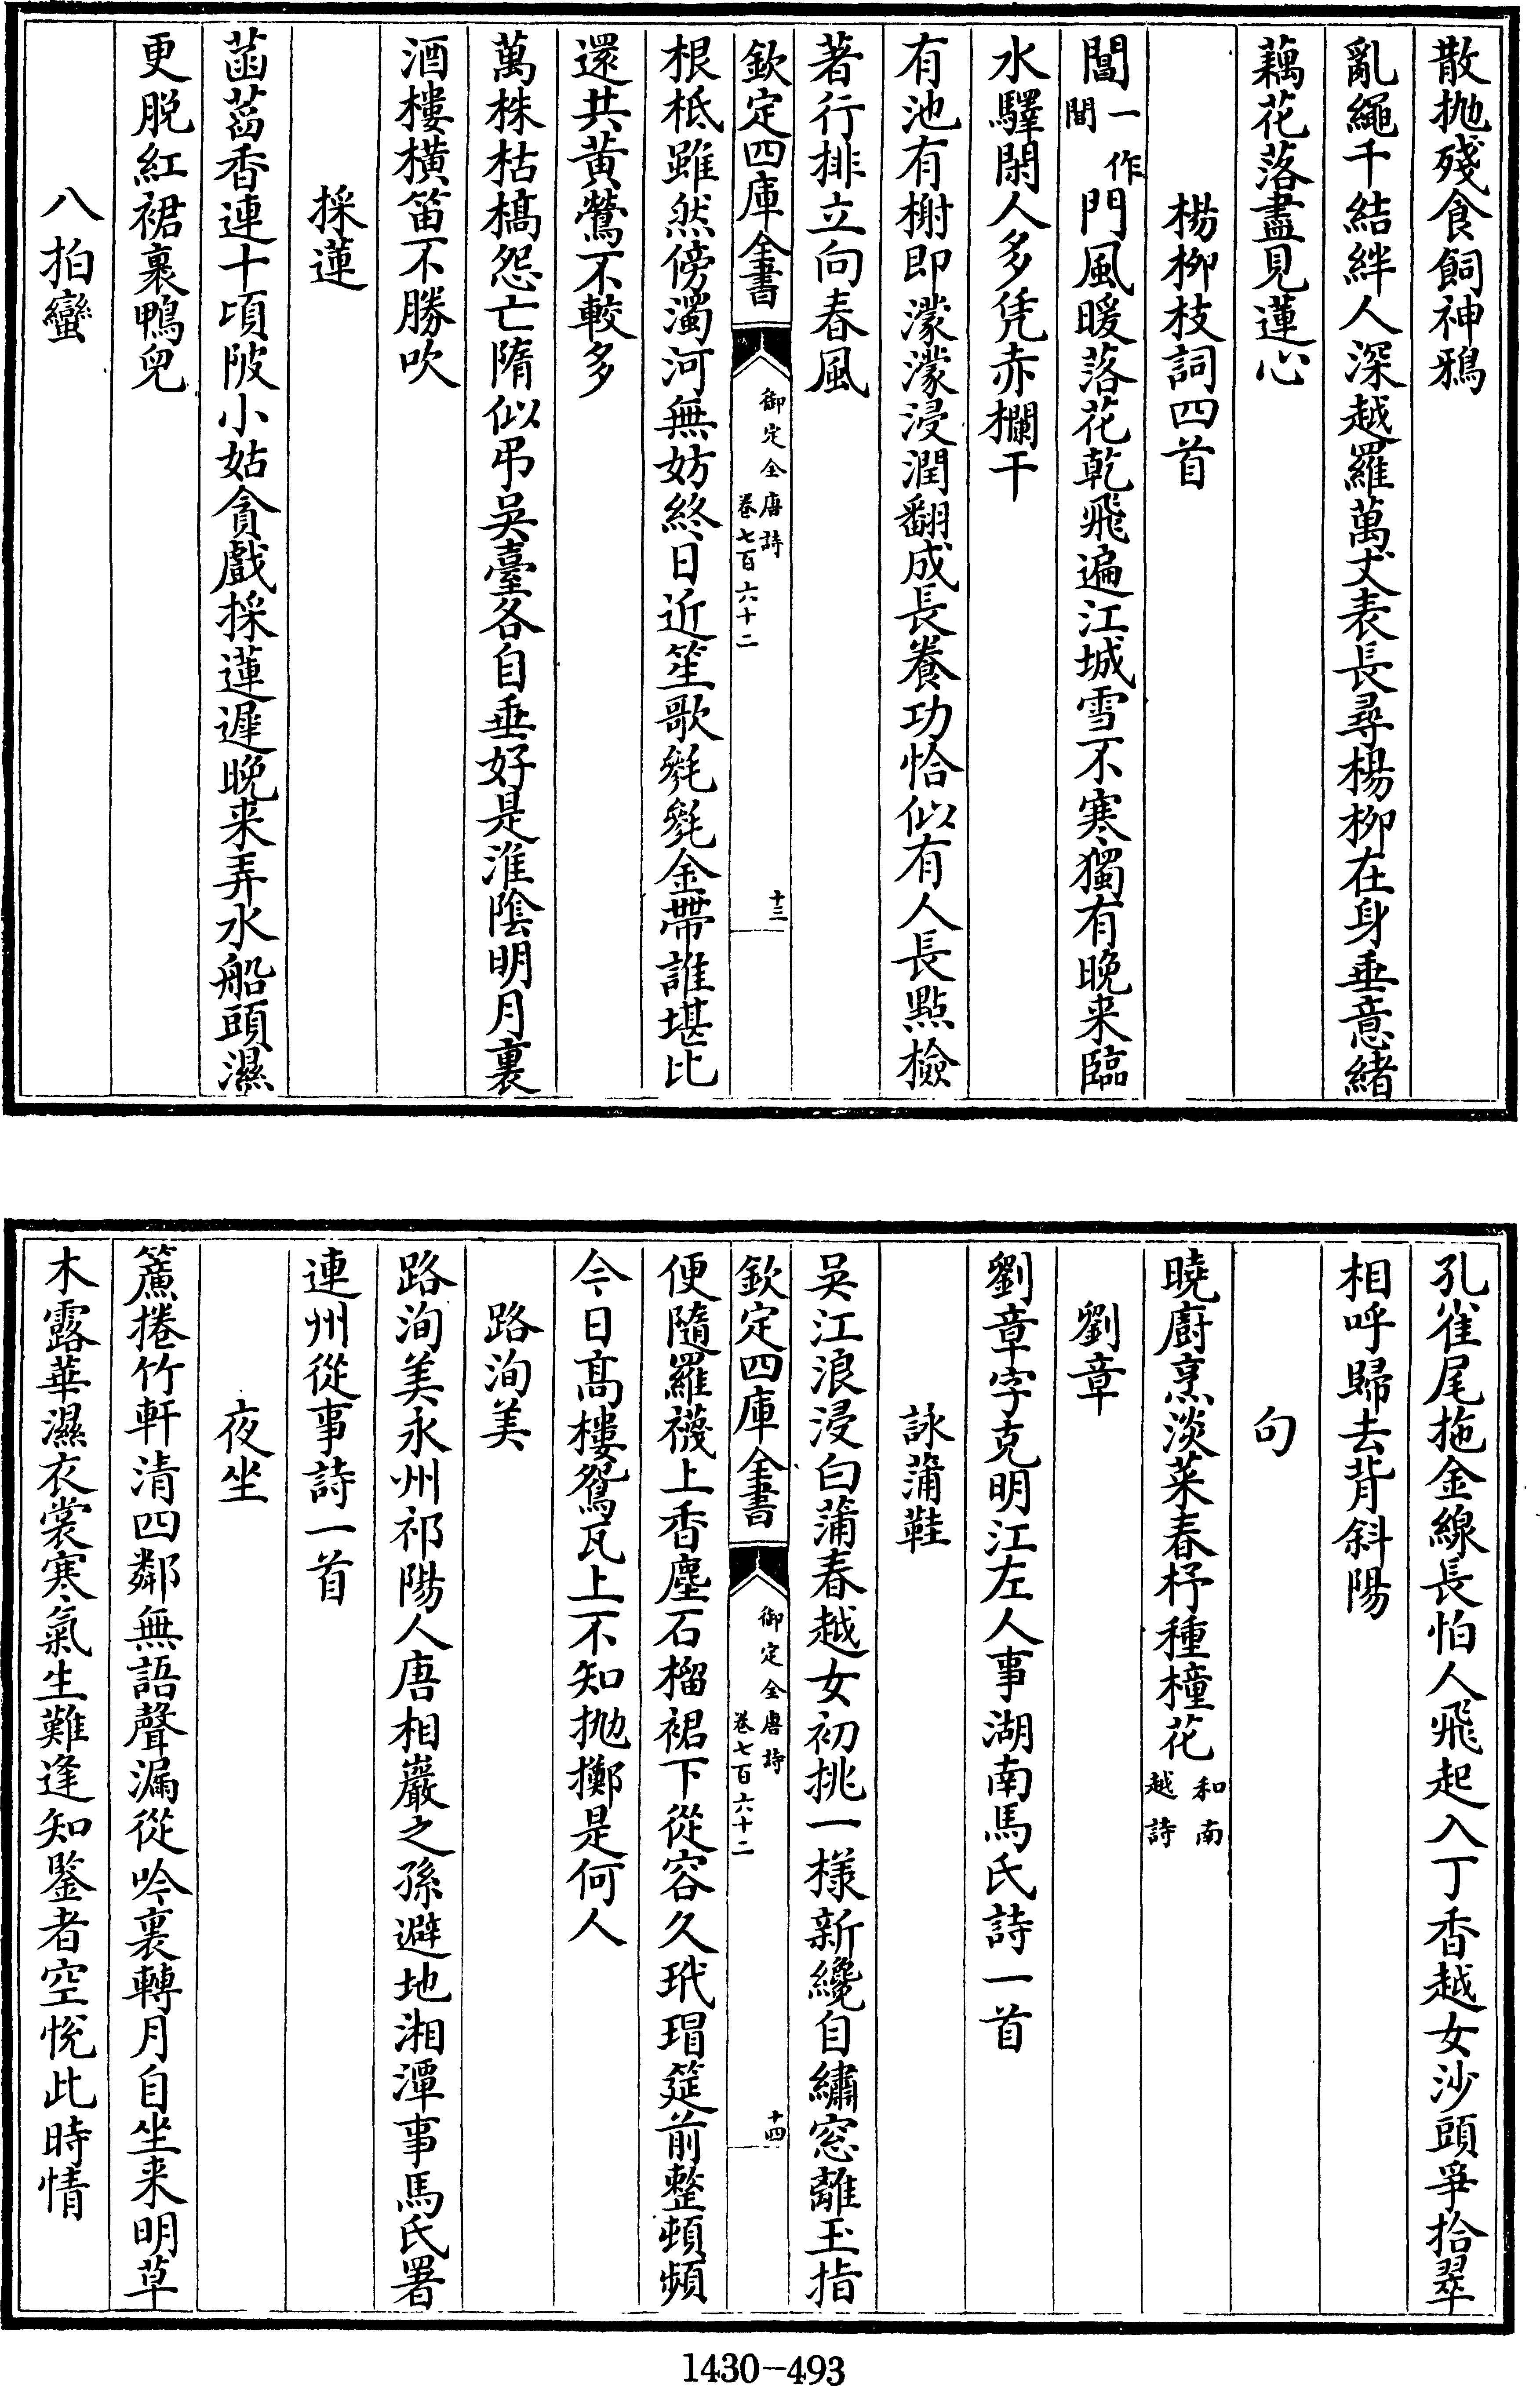 散抛殘食飼神鴉
亂繩千結絆人深越羅萬丈表長尋楊柳在身垂意緒
藕花落盡見蓮心
楊柳枝詞四首
閶一作閶門風暖落花乾飛遍江城雪不寒獨有晚来臨
水驛閑人多凭赤欄干
有池有榭即濛濛浸潤翻成長養功恰似有人長點檢
著行排立向春風
欽定四庫全書
御定全唐詩
卷七百六十二
十三
根柢雖然傍濁河無妨終日近笙歌毿毿金帶誰堪比
還共黃鶯不較多
萬株枯槁怨亡隋似弔吳臺各自垂好是淮隂明月裏
酒樓橫笛不勝吹
採蓮
菡萏香連十頃陂小姑貪戲採蓮遲晚来弄水船頭濕
更脱紅裙裹鴨兒
八拍蠻
孔雀尾拖金線長怕人飛起入丁香越女沙頭爭拾翠
相呼歸去背斜陽
句
曉廚烹淡菜春杼種橦花和南越詩
劉章
劉章字克明江左人事湖南馬氏詩一首
詠蒲鞋
吳江浪浸白蒲春越女初挑一樣新纔自繡窓離玉指
欽定四庫全書
御定全唐詩
卷七百六十二
十四
便隨羅襪上香塵石榴裙下從容久玳瑁筵前整頓頻
今日髙樓鴛瓦上不知抛擲是何人
路洵美
路洵美永州祁陽人唐相巖之孫避地湘潭事馬氏署
連州從事詩一首
夜坐
簾捲竹軒清四鄰無語聲漏從吟裏轉月自坐来明草
木露華濕衣裳寒氣生難逢知鑒者空悅此時情
1430-493